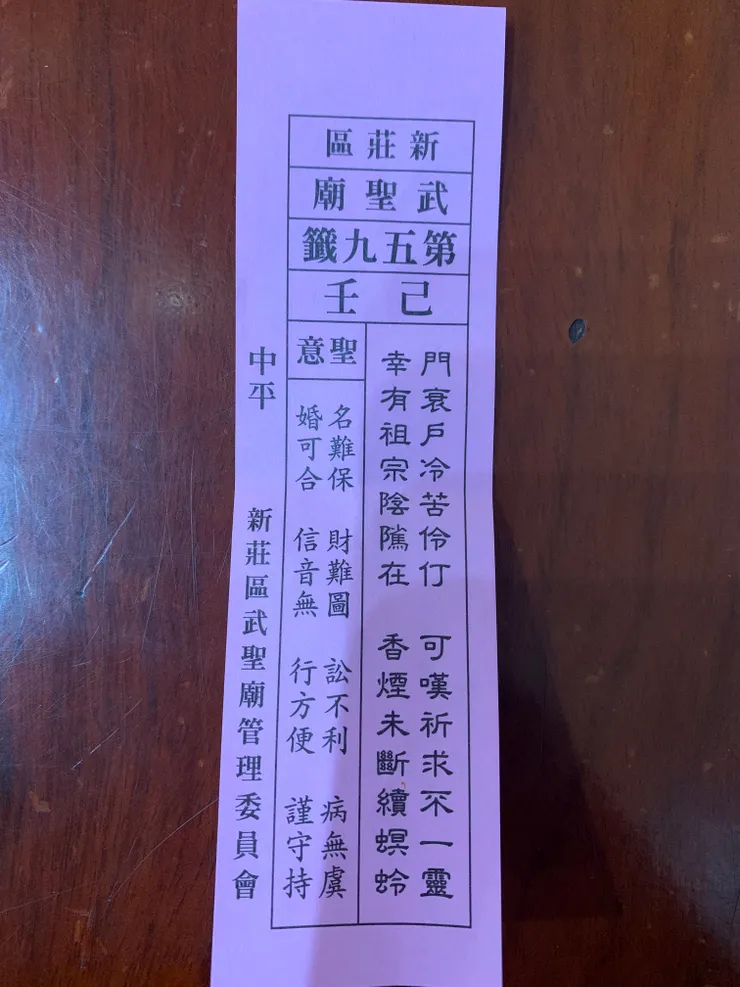 新莊區
武聖廟
第五九籤
己壬
門衰戶冷苦伶仃 可嘆祈求不一靈
幸有祖宗陰隲在 香煙未斷續螟蛉
聖意
名難保 財難圖 訟不利 病無虞
婚可合 信音無 行方便 謹守持
中平 新莊區武聖廟管理委員會